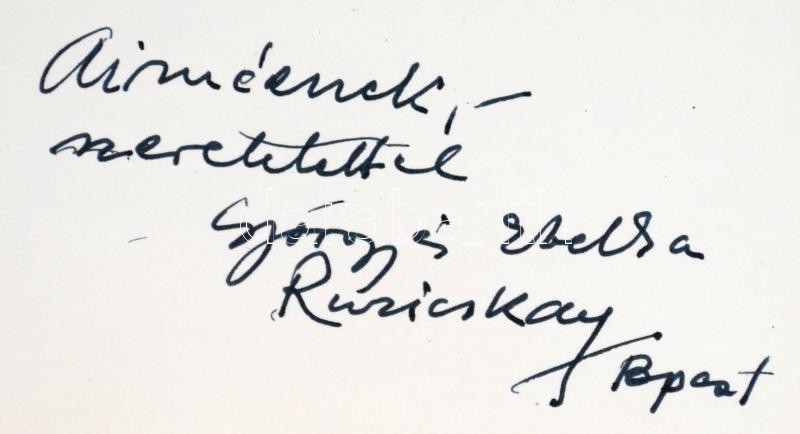 Aiméenek,-
szeretettel
György és Etelka
Ruzicskay
Bpest